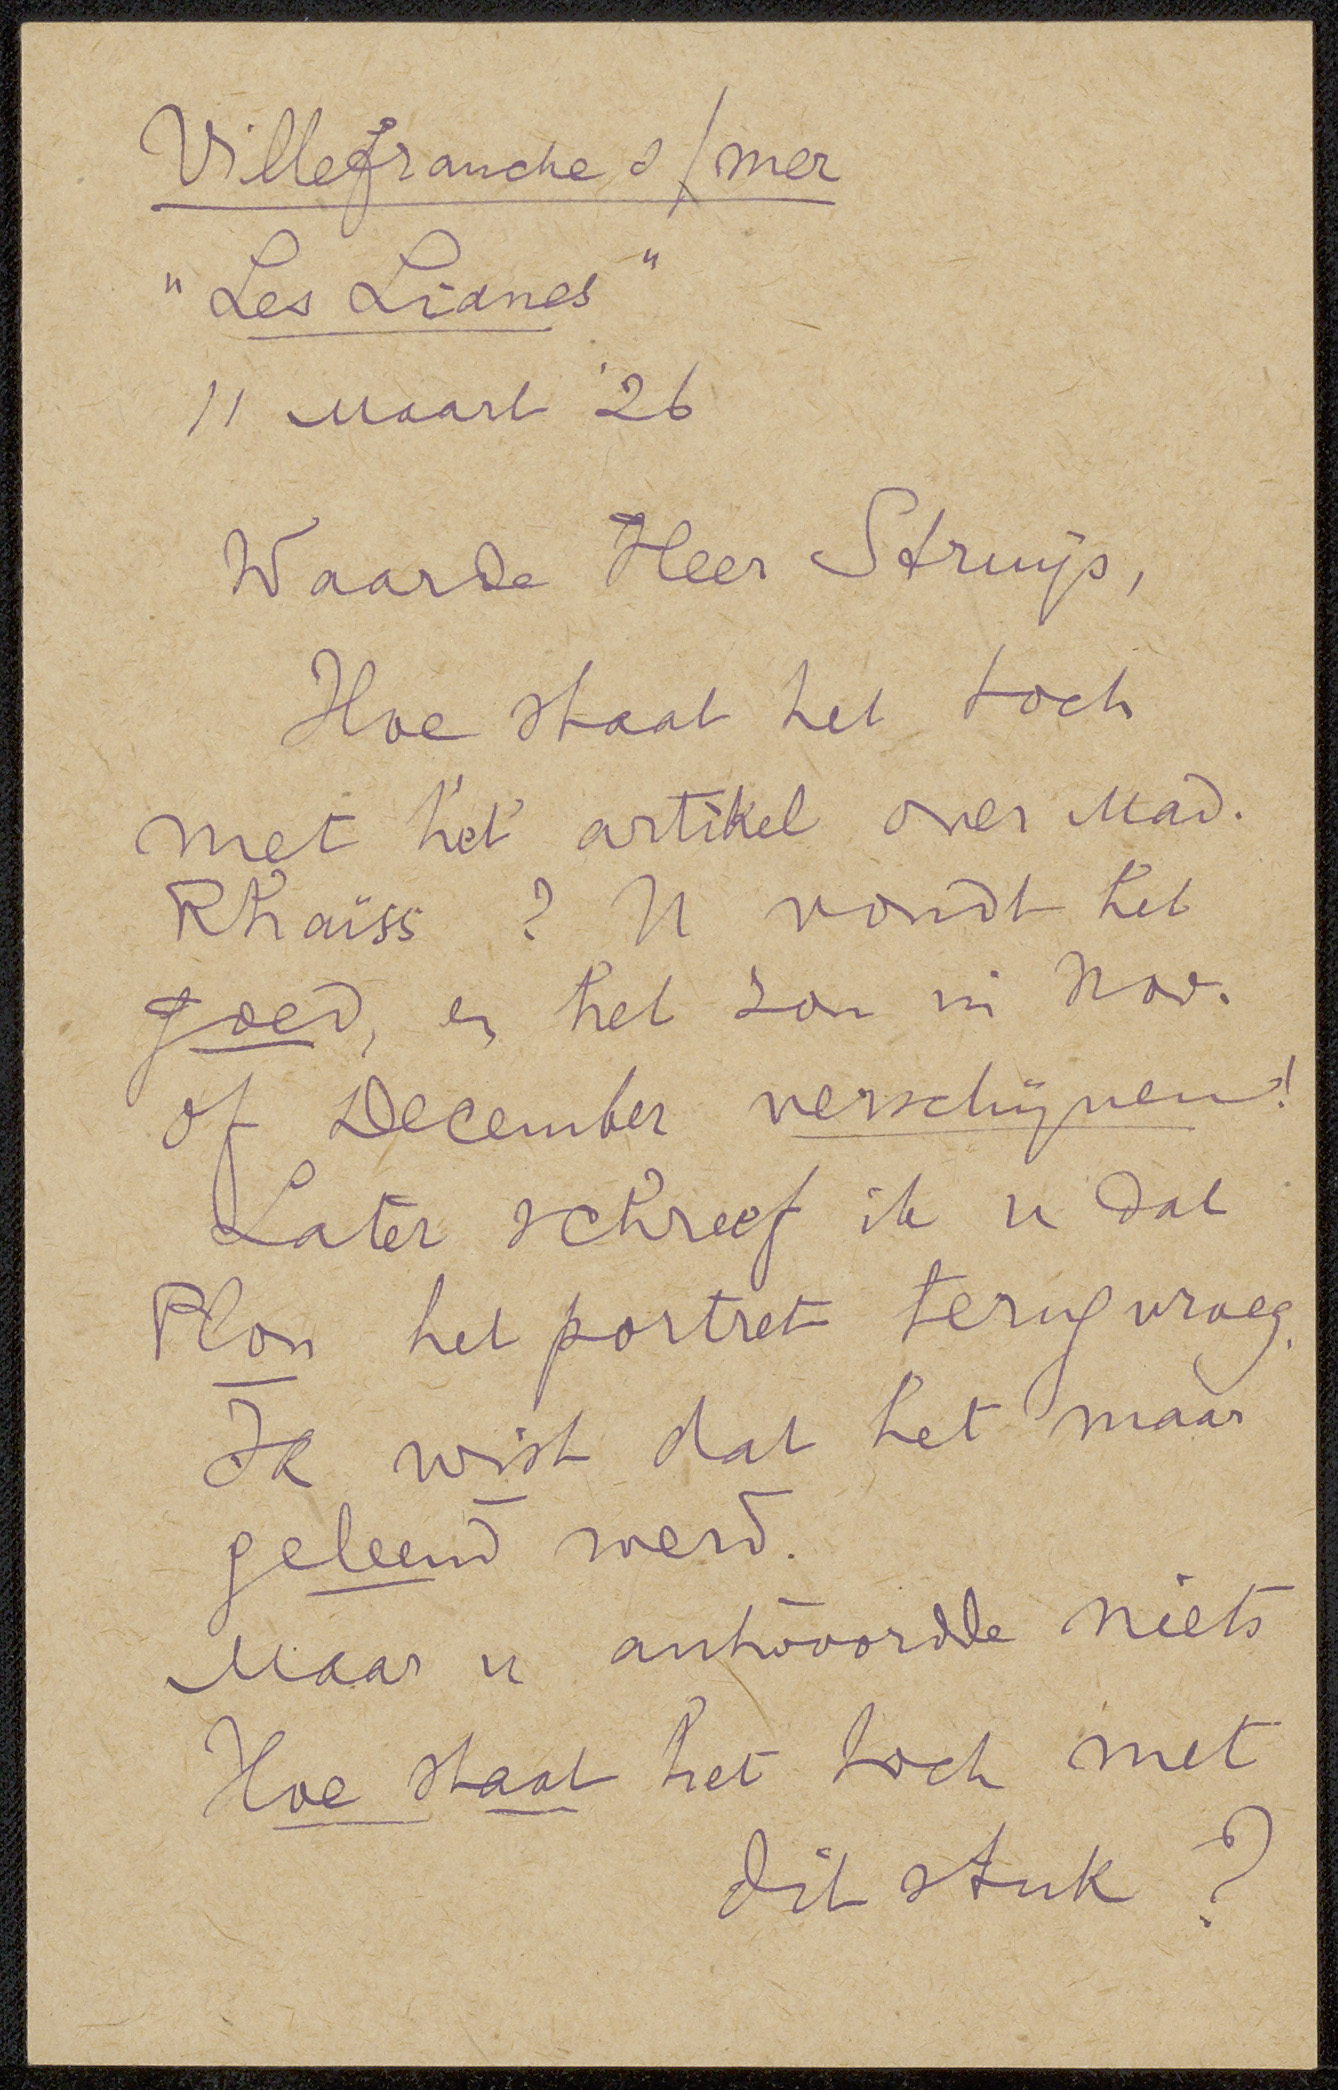 Villefranche s/mer
"Les Lianes"
11 Maart '26
Waarde Heer Struijs,
Hoe staat het toch
met het artikel over Mad.
Rhaïss ? U vondt het
goed, en het zou in Nov.
of December verschijnen!
Later schreef ik u dat
Plon het portret terugvroeg.
Ik wist dat het maar
geleend werd.
Maar u antwoordde niets
Hoe staat het toch met
dit stuk ?